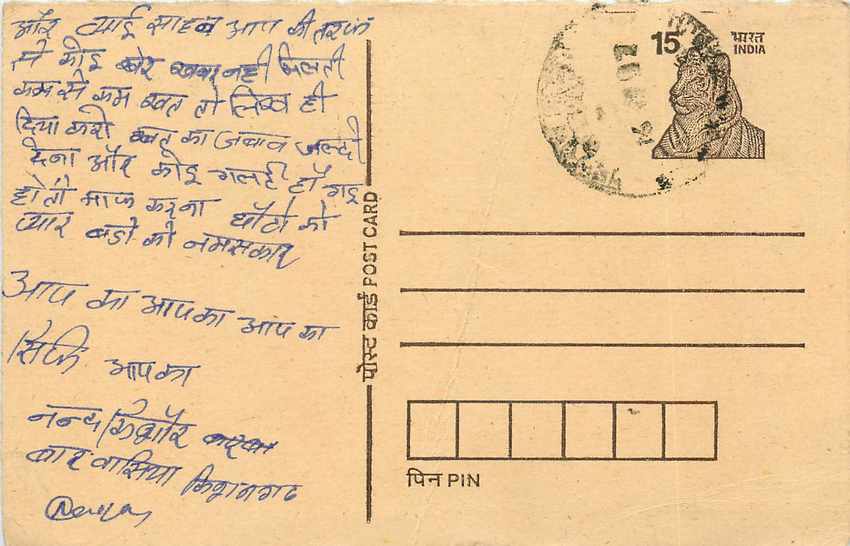 और भाई साहब आप की तरफ
से कोइ खेर खबर नही मिलती
कम से कम खत तो लिख ही
दिया करो खत का जवाब जल्दी
देना और कोइ गलती हौ गइ
हो तो माफ करना छोटो को
प्यार बडो को नमस्कार
आप का आपका आप का
सिर्फ आपका
नन्द किशोर
किशनगढ
पोस्ट कार्ड POST CARD
15
भारत
INDIA
पिन PIN